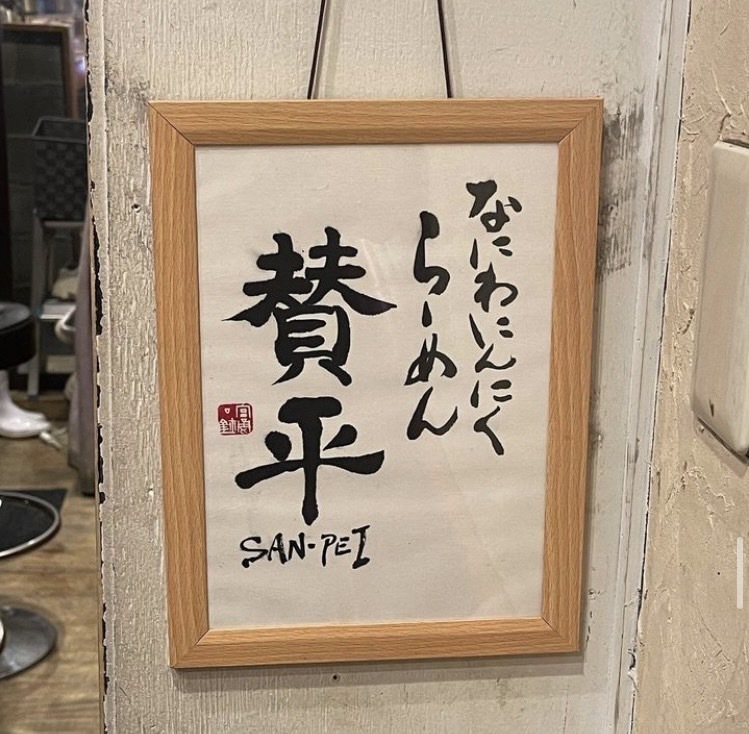 なにわにんにく
らーめん
賛平
SAN-PEI